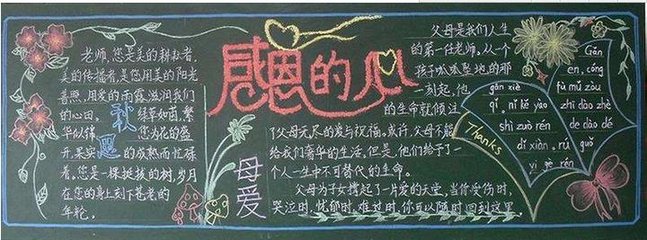 感恩的心
老师,您是美的耕耘者,
美的传播者,是您用美的阳光
普照,用爱的雨露滋润我们
的心田。 绿草如茵,繁
华似锦 您为花的盛
开,果实 的成熟而忙碌
着,您是一棵挺拔的树,岁月
在您的身上刻下苍老的
年轮。
母爱
父母是我们人生
的第一任老师,从一个
孩子呱呱坠地的那
一刻起,他
的生命就倾注
了父母无尽的爱与祝福。或许,父母不能
给我们奢华的生活,但是,他们给予了一
个人一生中不可替代的生命。
父母为子女撑起了一片爱的天空,当你受伤时,
哭泣时,忧郁时,难过时,你可以随时回到这里
Thanks
Gǎn
en, cóng
gǎn xiè fù mǔ zòu
qǐ, nǐ kě yào zhī dào zhè
shì zuò rén de dào dé
dǐ xiàn, rú guǒ
yī gè rén